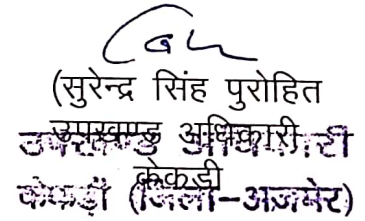 (सुरेन्द्र सिंह पुरोहित
उपखण्ड अधिकारी
केकड़ी
उपखण्ड अधिकारी
केकड़ी (जिला-अजमेर)